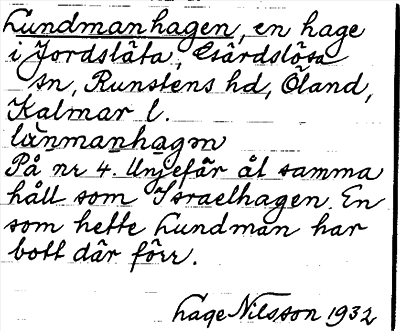 Lundmanhagen, en hage
i Jordslåta, Gårdslösa
sn, Runstens hd, Öland,
Kalmar l.
lùnmanhagən
På nr 4. Unjefär åt samma
håll som Israelhagen. En
som hette Lundman har
bott där förr.
Lage Nilsson 1932